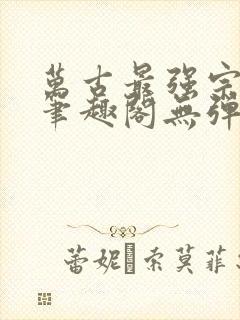 萬古最强宗
筆趣閣無彈
蕾妮·索莫菲